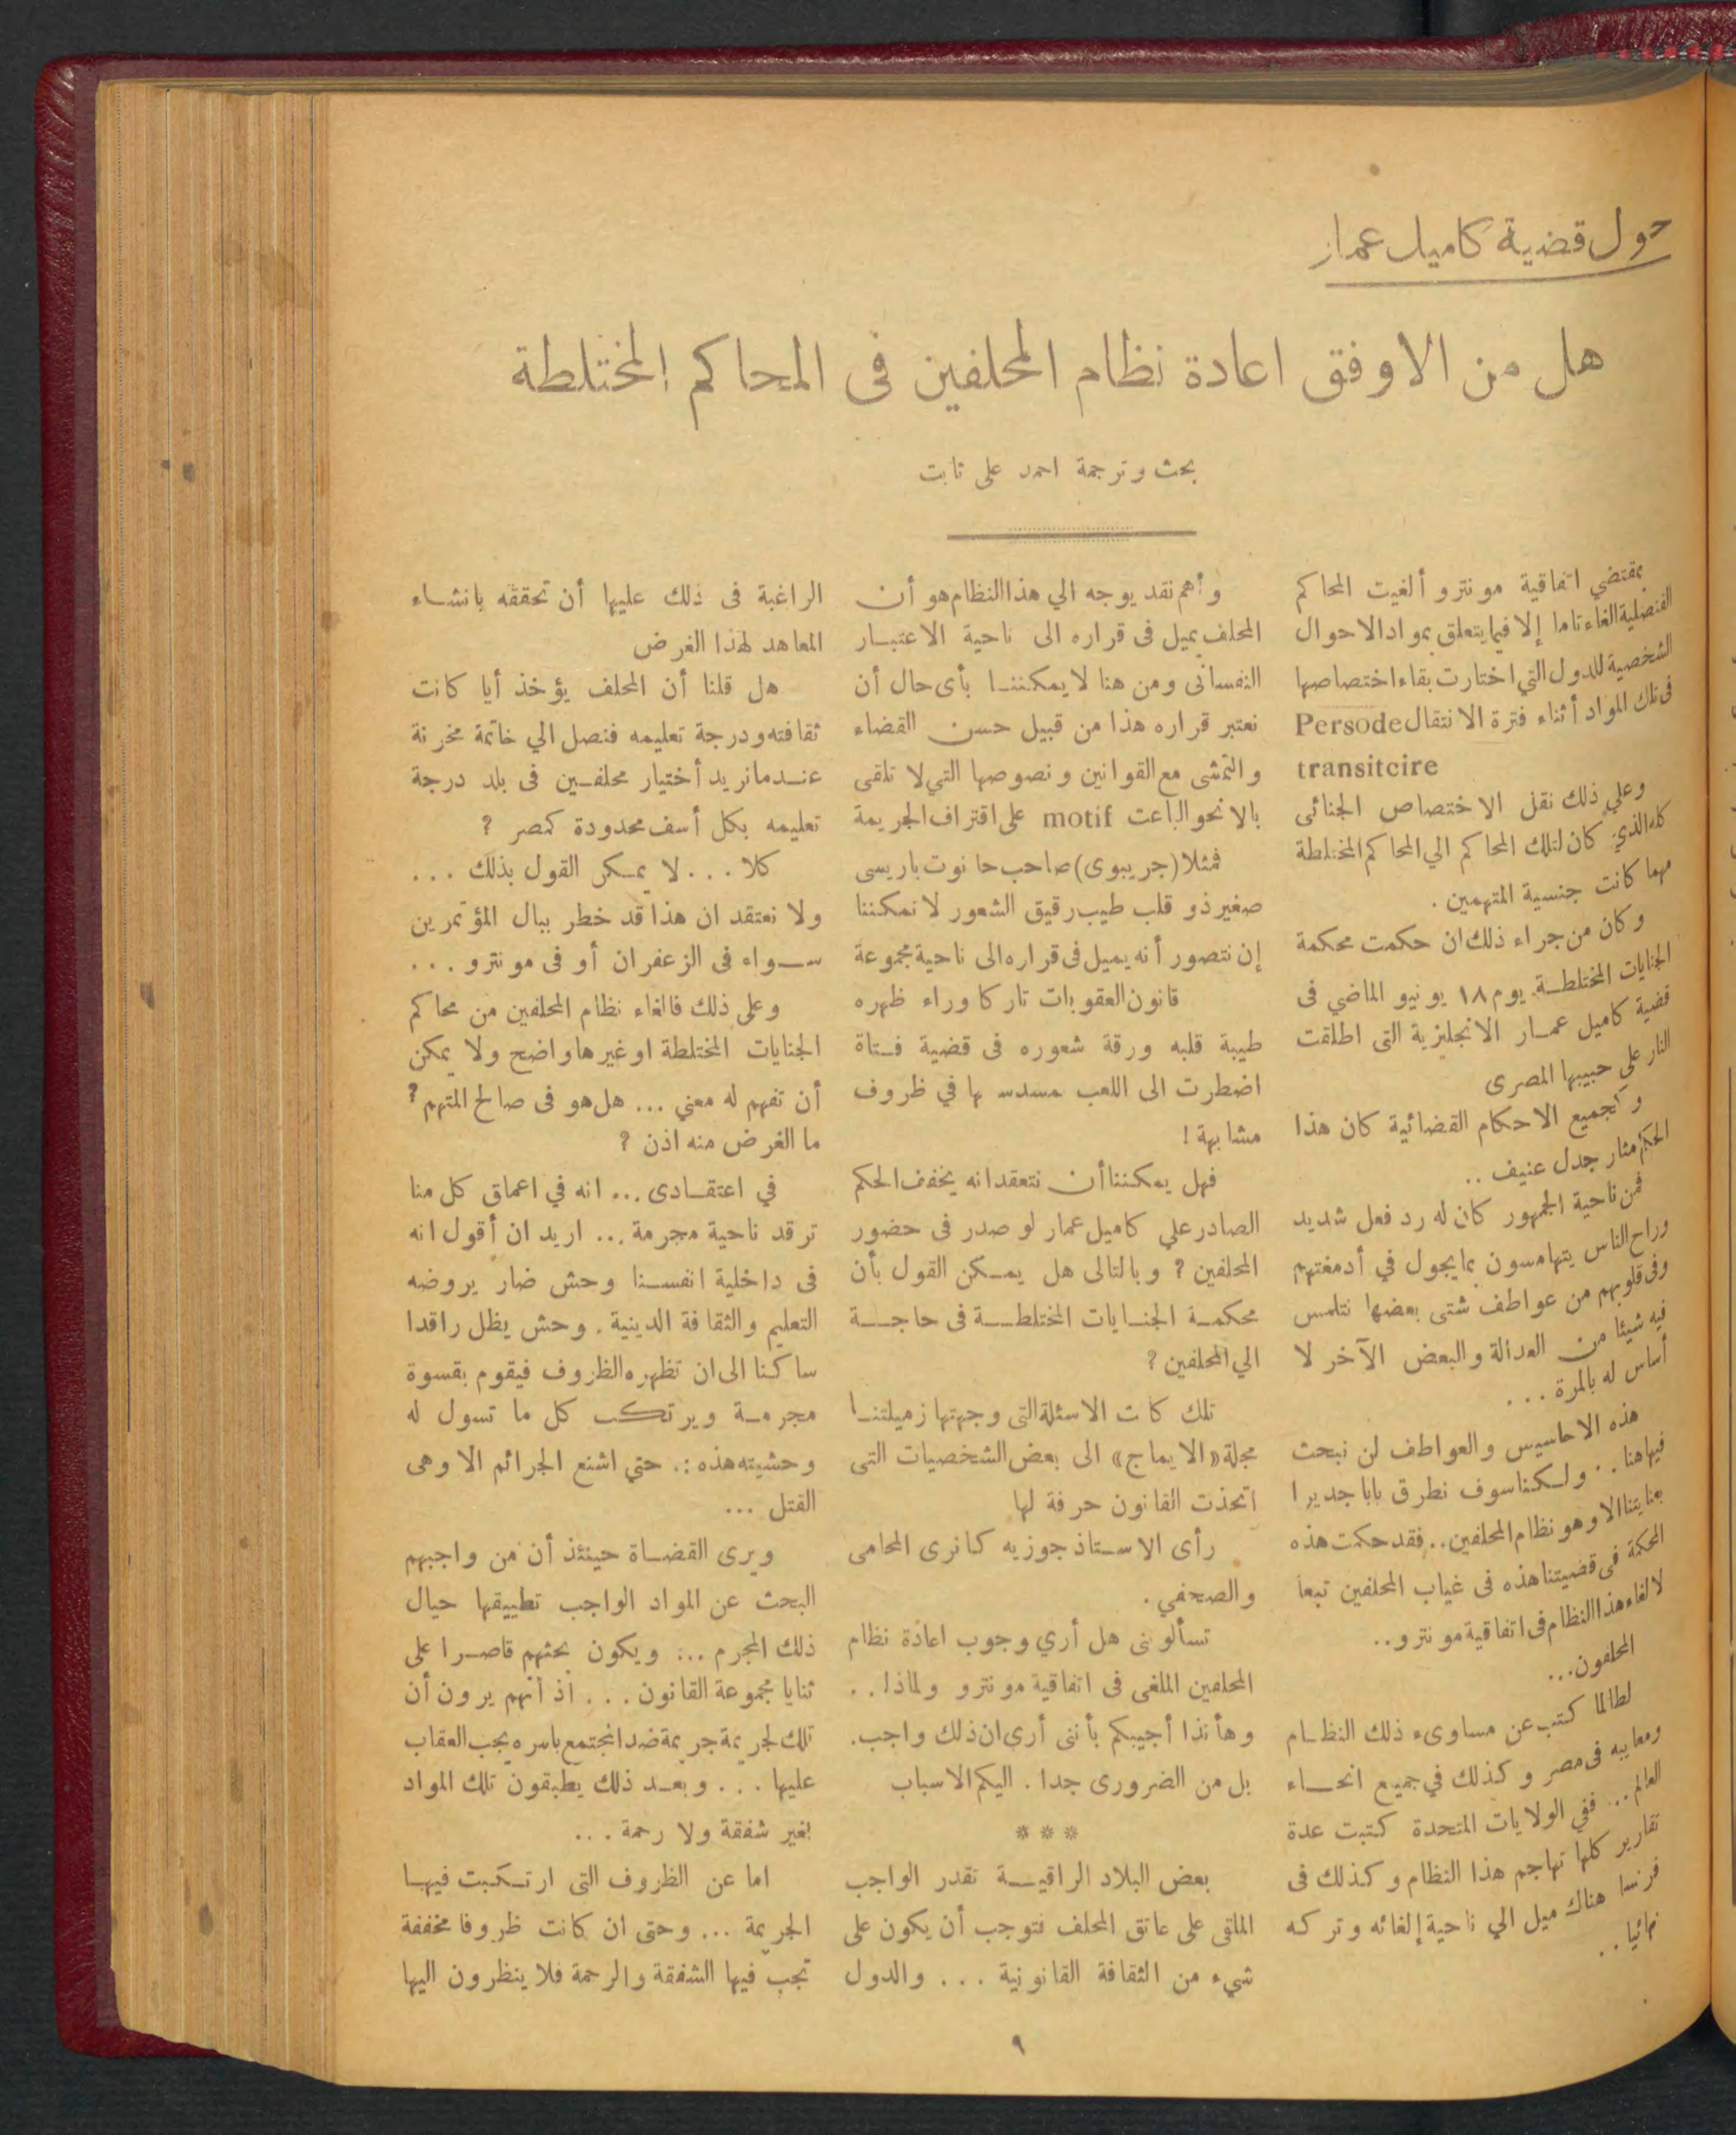 حول قضية كاميل عمار
هل من الاوفق اعادة نظام المحلفين فى المحاكم المختلطة
بحث وترجمة احمد على ثابت
بمقتضي اتفاقية مونترو ألغيت المحاكم
القنصلية الغاء تاما إلا فيما يتعلق بمواد الاحوال
الشخصية للدول التي اختارت بقاء اختصاصها
فى تلك المواد أثناء فترة الانتقال Persode
transitcire
وعلي ذلك نقل الاختصاص الجنائى
كله الذي كان لتلك المحاكم الي المحاكم المختلطة
مهما كانت جنسية المتهمين .
وكان من جراء ذلك ان حكمت محكمة
الجنايات المختلطة يوم ١٨ يونيو الماضي فى
قضية كاميل عمار الانجليزية التى اطلقت
النار علي حبيبها المصرى
وكجميع الاحكام القضائية كان هذا
الحكم مثار جدل عنيف ..
فمن ناحية الجمهور كان له رد فعل شديد
وراح الناس يتهامسون بما يجول في أدمغتهم
وفى قلوبهم من عواطف شتى بعضها نتلمس
فيه شيئا من العدالة والبعض الآخر لا
أساس له بالمرة ...
هذه الاحاسيس والعواطف لن نبحث
فيها هنا .. ولكنا سوف نطرق بابا جديرا
بعنايتنا الا وهو نظام المحلفين .. فقد حكمت هذه
المحكمة فى قضيتنا هذه فى غياب المحلفين تبعا
لالغاء هذا النظام فى اتفاقية مونترو ..
المحلفون ...
لطالما كتب عن مساوىء ذلك النظام
ومعايبه فى مصر وكذلك في جميع انحاء
العالم .. ففي الولايات المتحدة كتبت عدة
تقارير كلها تهاجم هذا النظام وكذلك فى
فرنسا هناك ميل الي ناحية إلغائه وتركه
نهائيا ..
وأهم نقد يوجه الي هذا النظام هو أن
المحلف يميل فى قراره الى ناحية الاعتبار
النفسانى ومن هنا لا يمكننا بأى حال أن
نعتبر قراره هذا من قبيل حسن القضاء
والتمشى مع القوانين ونصوصها التي لا تلقى
بالا نحو الباعث motif على اقتراف الجريمة
فمثلا (جريبوى) صاحب حانوت باريسى
صغير ذو قلب طيب رقيق الشعور لا نمكننا
إن نتصور أنه يميل فى قراره الى ناحية مجموعة
قانون العقوبات تاركا وراء ظهره
طيبة قلبه ورقة شعوره فى قضية فتاة
اضطرت الى اللعب بمسدس بها في ظروف
مشابهة !
فهل يمكننا أن نتعقد انه يخفف الحكم
الصادر علي كاميل عمار لو صدر فى حضور
المحلفين ? وبالتالى هل يمكن القول بأن
محكمة الجنايات المختلطة فى حاجة
الي المحلفين ?
تلك كا ت الاسئلة التى وجهتها زميلتنا
مجلة «الايماج» الى بعض الشخصيات التى
اتخذت القانون حرفة لها
رأى الاستاذ جوزيه كانرى المحامى
والصحفي .
تسألونى هل أري وجوب اعادة نظام
المحلفين الملغى فى اتفاقية مونترو ولماذا ..
وهأنذا أجيبكم بأننى أرى ان ذلك واجب.
بل من الضرورى جدا . اليكم الاسباب
***
بعض البلاد الراقية تقدر الواجب
الملقى على عاتق المحلف فتوجب أن يكون على
شيء من الثقافة القانونية ... والدول
الراغبة فى ذلك عليها أن تحققه بانشاء
المعاهد لهذا الغرض
هل قلنا أن المحلف يؤخذ أيا كانت
ثقافته ودرجة تعليمه فنصل الي خاتمة محزنة
عندما نريد أختيار محلفين فى بلد درجة
تعليمه بكل أسف محدودة كمصر ?
كلا ... لا يمكن القول بذلك ...
ولا نعتقد ان هذا قد خطر ببال المؤتمرين
سواه فى الزعفران أو فى مونترو ...
وعلى ذلك فالغاء نظام المحلفين من محاكم
الجنايات المختلطة اوغيرها واضح ولا يمكن
أن تفهم له معني ... هل هو فى صالح المتهم ?
ما الغرض منه اذن ?
في اعتقادى ... انه في اعماق كل منا
ترقد ناحية مجرمة ... اريد ان أقول انه
فى داخلية انفسنا وحش ضار يروضه
التعليم والثقافة الدينية . وحش يظل راقدا
ساكنا الى ان تظهره الظروف فيقوم بقسوة
مجرمة ويرتكب كل ما تسول له
وحشيته هذه :. حتي اشنع الجرائم الا وهى
القتل ...
ويرى القضاة حينئذ أن من واجبهم
البحث عن المواد الواجب تطبيقها حيال
ذلك المجرم ... ويكون بحثهم قاصرا على
ثنايا مجموعة القانون ... اذ أنهم يرون أن
تلك لجريمة جريمة ضد المجتمع باسره يجب العقاب
عليها ... وبعد ذلك يطبقون تلك المواد
بغير شفقة ولا رحمة ...
اما عن الظروف التى ارتكبت فيها
الجريمة ... وحتى ان كانت ظروفا مخففة
تجب فيها الشفقة والرحمة فلا ينظرون اليها
٩